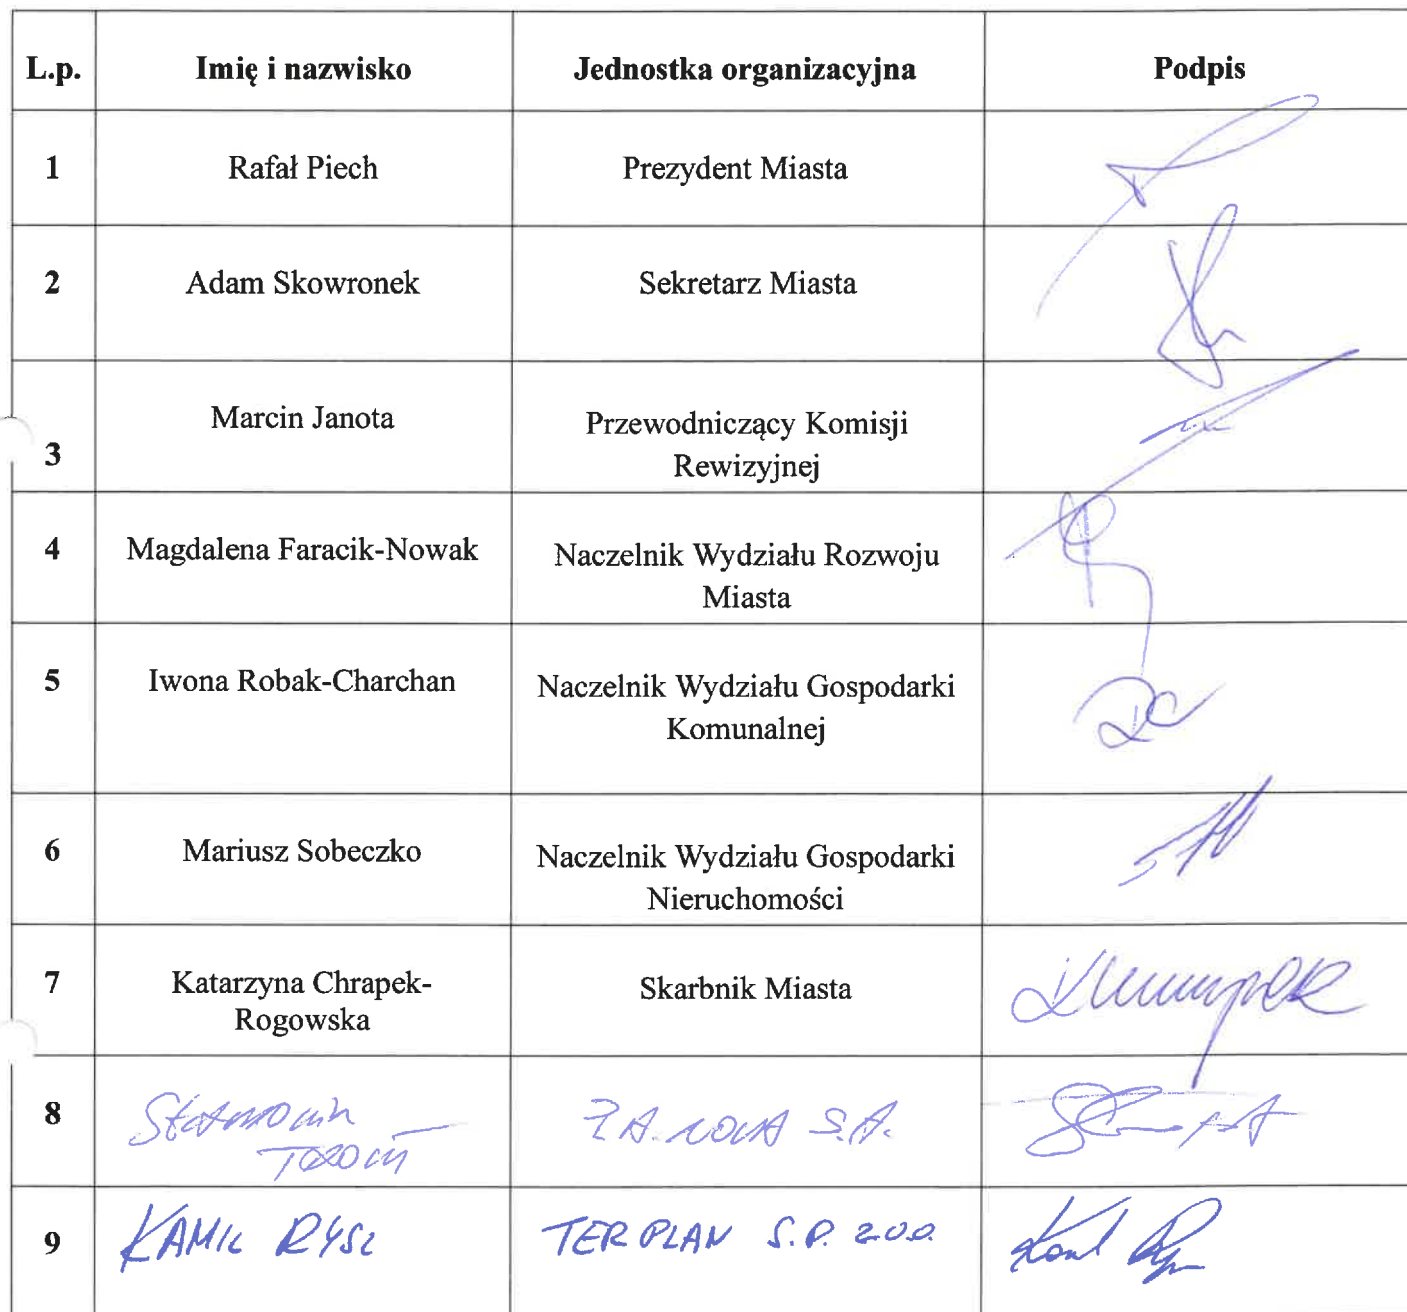 L.p. Imię i nazwisko Jednostka organizacyjna Podpis
1 Rafał Piech Prezydent Miasta
2 Adam Skowronek Sekretarz Miasta
3 Marcin Janota Przewodniczący Komisji
Rewizyjnej
4 Magdalena Faracik-Nowak Naczelnik Wydziału Rozwoju
Miasta
5 Iwona Robak-Charchan Naczelnik Wydziału Gospodarki
Komunalnej
6 Mariusz Sobeczko Naczelnik Wydziału Gospodarki
Nieruchomości
7 Katarzyna Chrapek-
Rogowska Skarbnik Miasta
8 S.A.
9 KAMIL TERPLAN